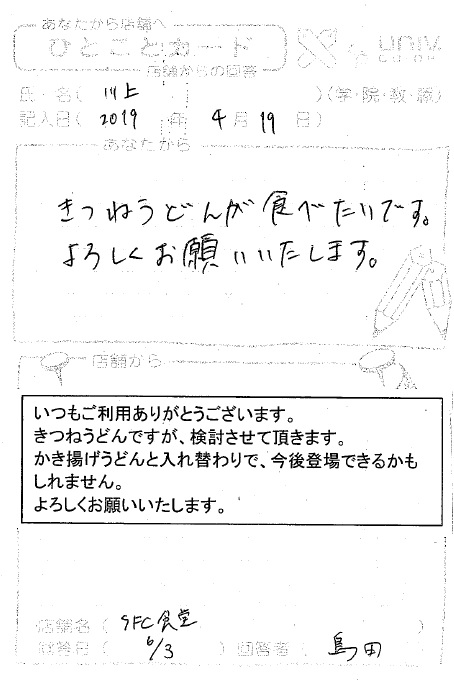 あなたから店舗へ
ひとことカード
店舗からの回答
UNIV.
CO-OP
氏・名( 川上 )(学・院・教・職)
記入日( 2019 年 4月 19 日)
あなたから
きつねうどんが食べたいです。
よろしくお願いいたします。
店舗から
いつもご利用ありがとうございます。
きつねうどんですが、検討させて頂きます。
かき揚げうどんと入れ替わりで、今後登場できるかも
しれません。
よろしくお願いいたします。
店舗名( SFC食堂 )
回答日( 6/3 ) 回答者( 島田